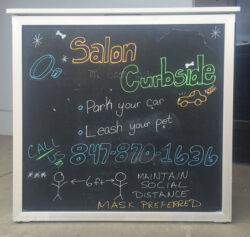 Salon
Curbside
• Park your car
• Leash your pet
CALL US 847-870-1636
← 6ft →
MAINTAIN
SOCIAL
DISTANCE
MASK PREFERRED